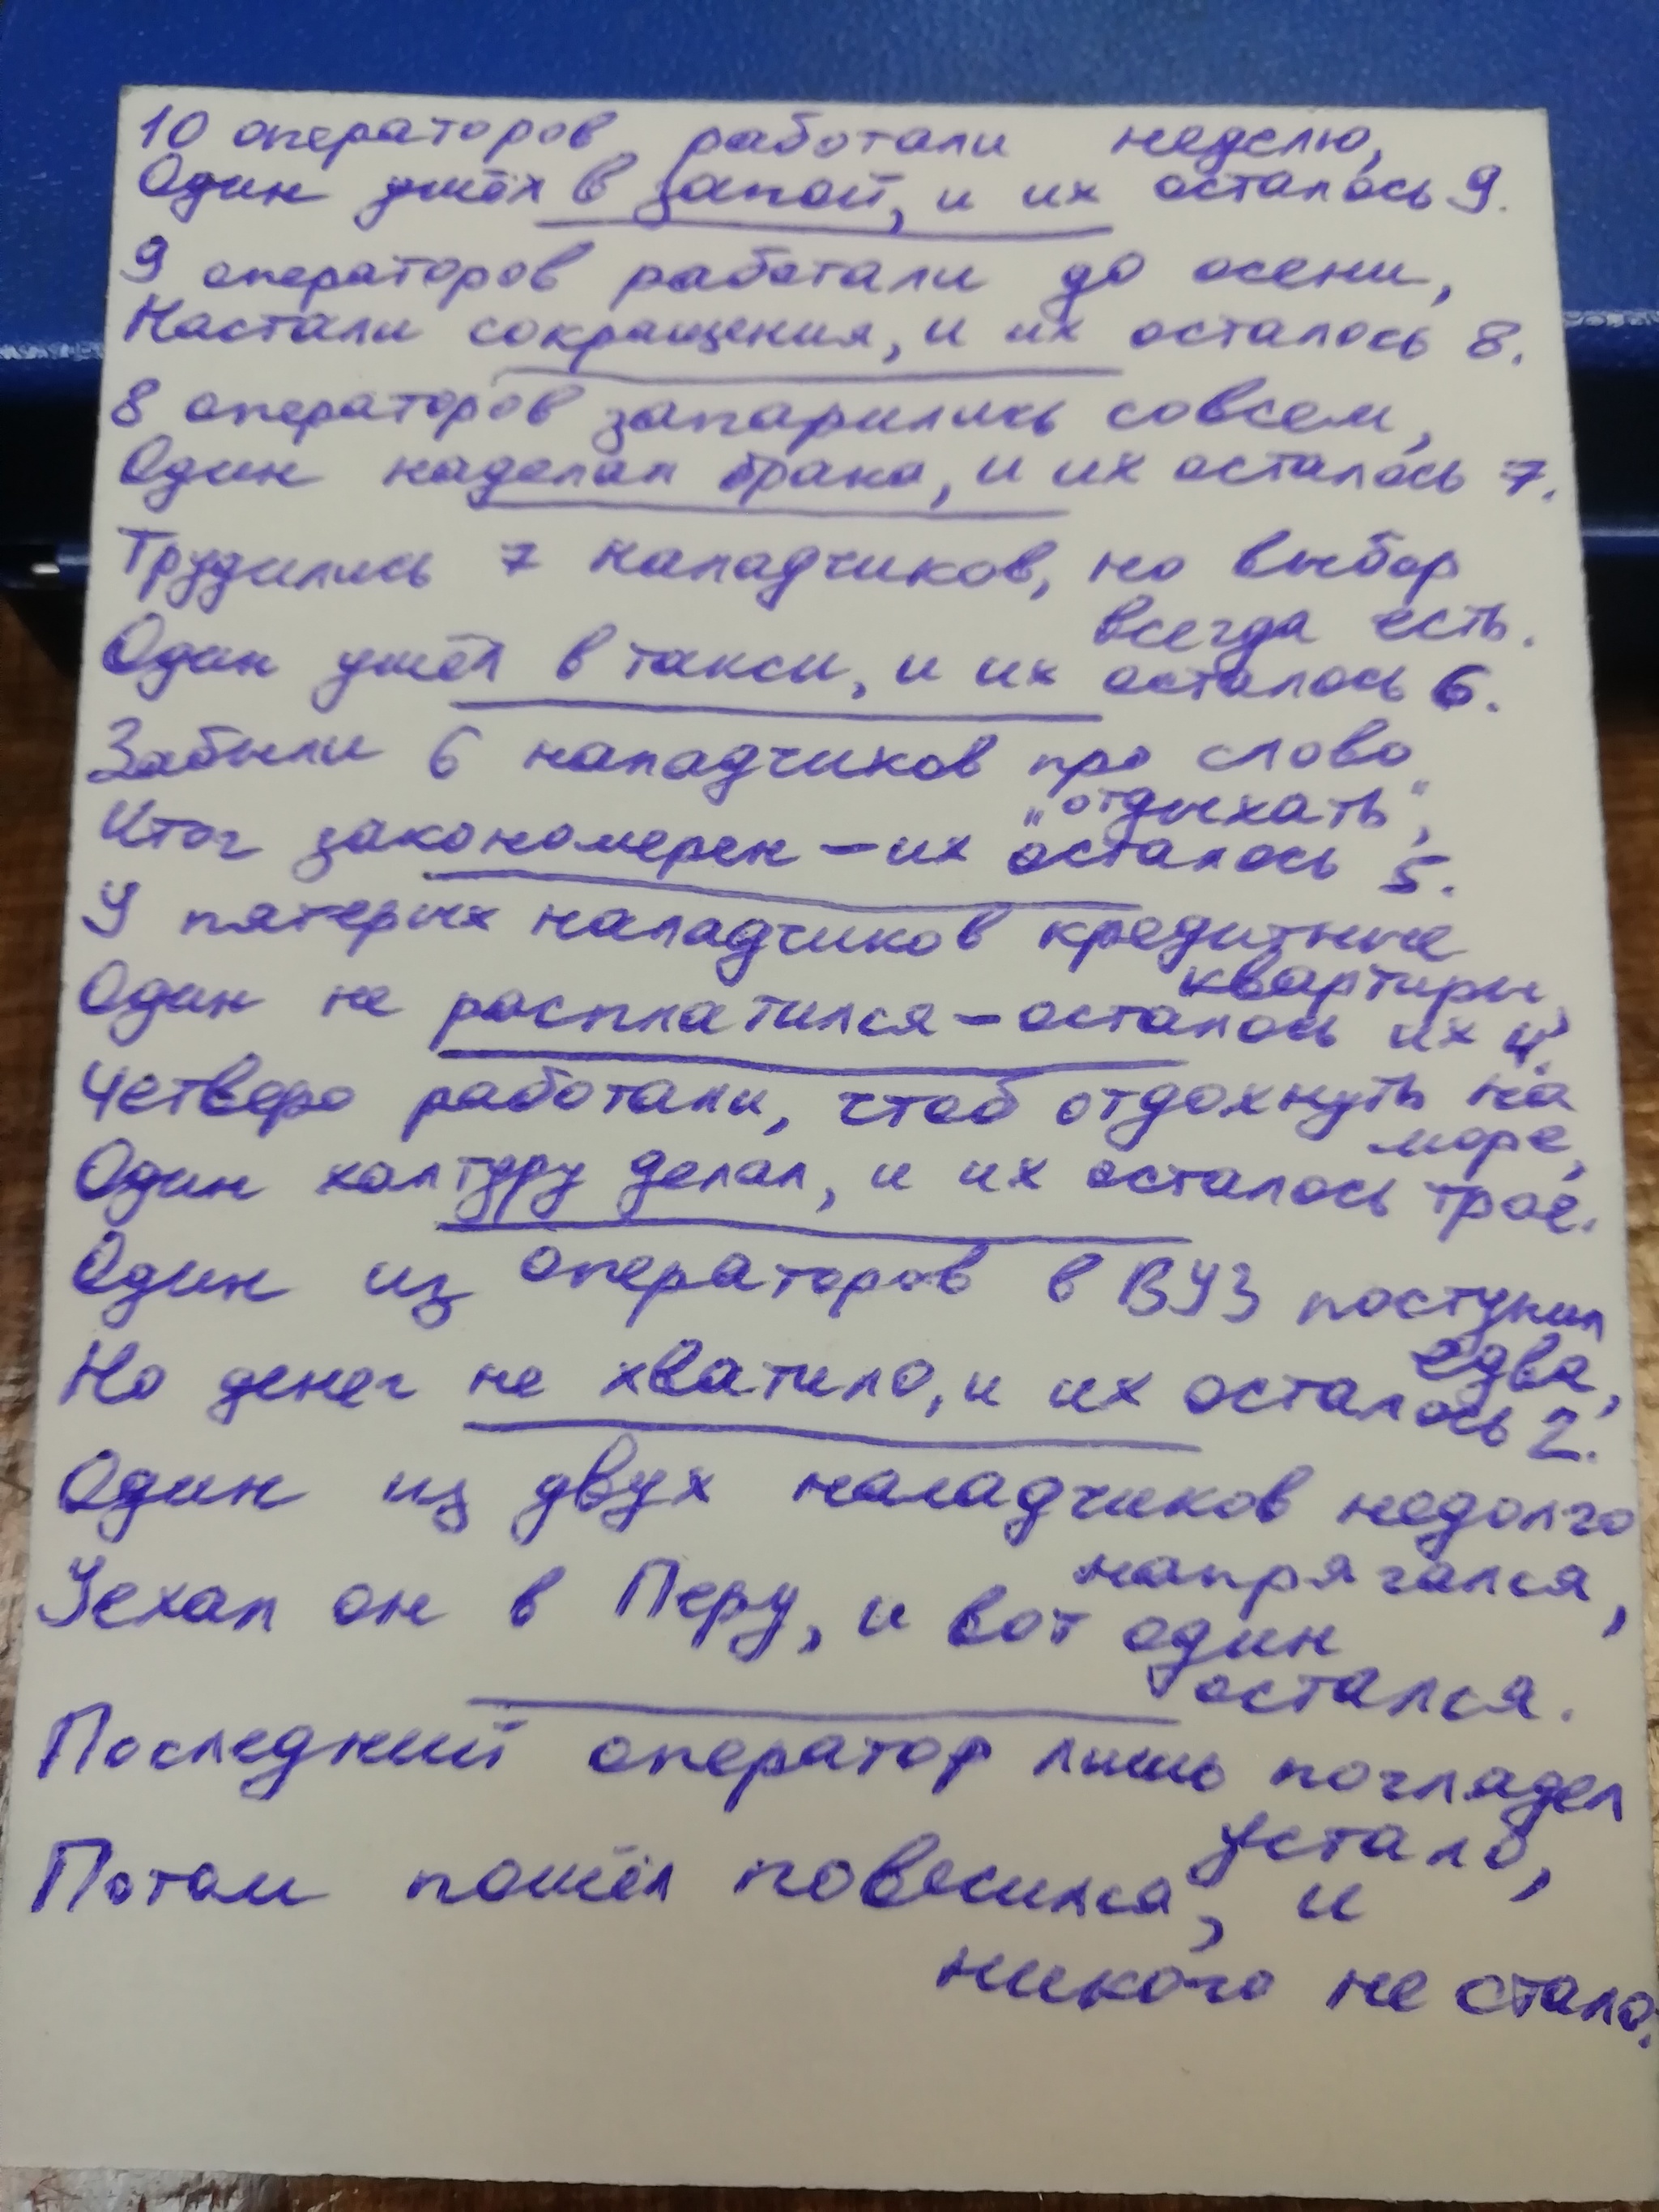 10 операторов работали неделю,
Один ушёл в запой, и их осталось 9.
9 операторов работали до осени,
Настали сокращения, и их осталось 8.
8 операторов запарились совсем,
Один наделал брака, и их осталось 7.
Трудились 7 наладчиков, но выбор
всегда есть.
Один ушёл в такси, и их осталось 6.
Забыли 6 наладчиков про слово
„отдыхать",
Итог закономерен – их осталось 5.
У пятерых наладчиков кредитные
квартиры,
Один не расплатился – осталось их 4.
Четверо работали, чтоб отдохнуть на
море,
Один халтуру делал, и их осталось трое.
Один из операторов в ВУЗ поступил
едва,
Но денег не хватило, и их осталось 2.
Один из двух наладчиков недолго
напрягался,
Уехал он в Перу, и вот один
остался.
Последний оператор лишь поглядел
устало,
Потом пошёл повесился, и
никого не стало.